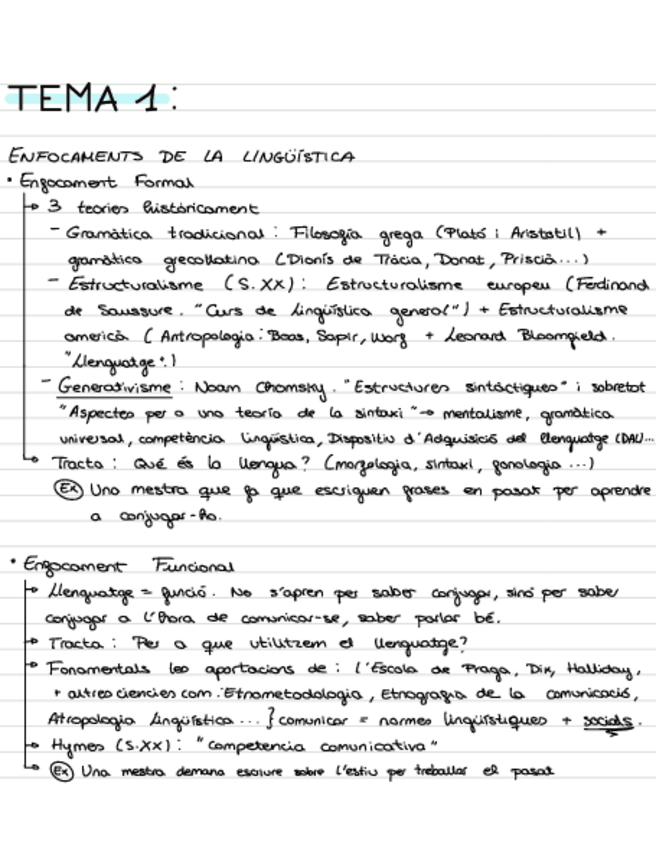 TEMA 1:
ENFOCAMENTS DE LA LINGÜÍSTICA
• Enfocament Formal
→ 3 teories històricament
- Gramàtica tradicional : Filosofia grega (Plató i Aristòtil) +
gramàtica grecollatina (Dionís de Tràcia, Donat, Priscià...)
- Estructuralisme (S. XX) : Estructuralisme europeu (Ferdinand
de Saussure. "Curs de Lingüística general") + Estructuralisme
americà ( Antropologia : Boas, Sapir, Worf + Leonard Bloomfield.
"Llenguatge".)
- Generativisme : Noam Chomsky. "Estructures sintàctiques" i sobretot
"Aspectes per a una teoría de la sintaxi" → mentalisme, gramàtica
universal, competència lingüística, Dispositiu d'Adquisició del llenguatge (DAL)...
→ Tracta : Què és la llengua? (morfologia, sintaxi, fonologia ...)
Ex Una mestra que fa que escriguen frases en passat per aprendre
a conjugar-ho.
• Enfocament Funcional
→ Llenguatge = funció. No s'apren per saber conjugar, sinó per saber
conjugar a l'hora de comunicar-se, saber parlar bé.
→ Tracta : Per a que utilitzem el llenguatge?
→ Fonamentals les aportacions de : l'Escola de Praga, Dik, Halliday,
+ altres ciencies com : Etnometodologia, Etnografia de la comunicació,
Atropologia Lingüística ... } comunicar = normes lingüístiques + socials.
→ Hymes (S.XX) : "competencia comunicativa"
→ Ex Una mestra demana escriure sobre l'estiu per treballar el passat